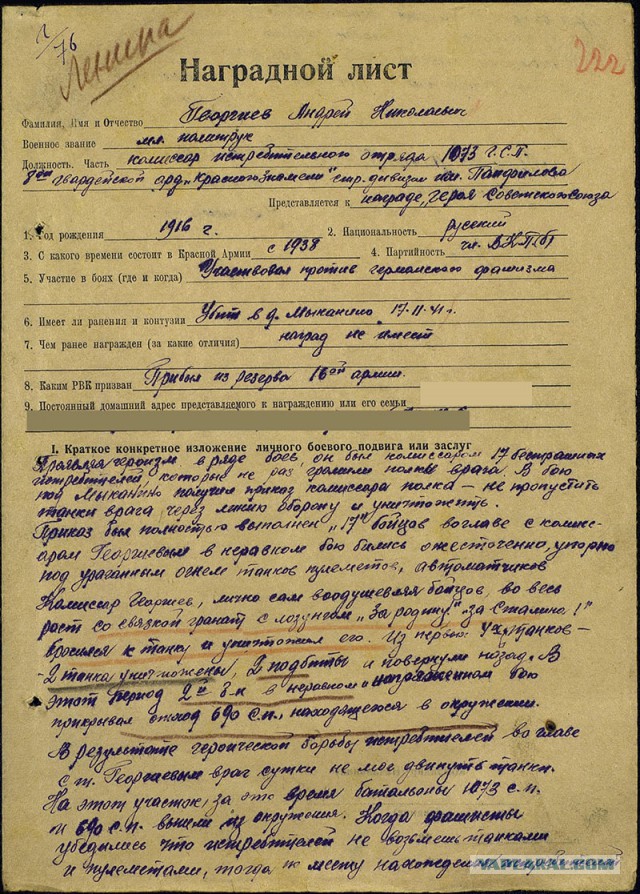 Л/76
Ленина
222
Наградной лист
Фамилия, Имя и Отчество Георгиев Андрей Николаевич
Военное звание мл. политрук
Должность. Часть комиссар истребительного отряда 1073 Г.С.П.
8ой гвардейской орд. "Красного Знамени" стр. дивизии им. Панфилова
Представляется к награде "Героя Советского Союза
1. Год рождения 1916 г. 2. Национальность русский
3. С какого времени состоит в Красной Армии с 1938 4. Партийность чл. ВКП(б)
5. Участие в боях (где и когда) Участвовал против германского фашизма
6. Имеет ли ранения и контузии Убит в д. Мыканино 17.11.41г.
7. Чем ранее награжден (за какие отличия) наград не имеет
8. Каким РВК призван Прибыл из резерва 16ой армии.
9. Постоянный домашний адрес представляемого к награждению или его семьи
I. Краткое конкретное изложение личного боевого подвига или заслуг
Проявляя героизм в ряде боев, он был комиссаром 17 бесстрашных
истребителей, которые не раз громили полки врага. В бою
под Мыканино получил приказ комиссара полка – не пропустить
танки врага через линию обороны и уничтожить.
Приказ был полностью выполнен, "17" бойцов во главе с комис-
саром Георгиевым в неравном бою бились ожесточенно, упорно
под ураганным огнем танков пулеметов, автоматчиков
Комиссар Георгиев, лично сам воодушевляя бойцов, во весь
рост со связкой гранат с лозунгом "За родину" "за Сталина!"
бросился к танку и уничтожил его. Из первых 4х танков –
2 танка уничтожены, 2 подбиты и повернули назад. В
этот период 2 в неравном и напряженном бою
прикрывал отход 690 с.п., находящегося в окружении.
В результате героической борьбы истребителей во главе
с т. Георгиевым враг сутки не мог двинуть танки.
На этот участок, за это время батальоны 1073 с.п.
и 690 с.п. вышли из окружения. Когда фашисты
убедились что истребителей не возьмешь танками
и пулеметами, тогда по месту нахождения
YAPLAKAL.COM